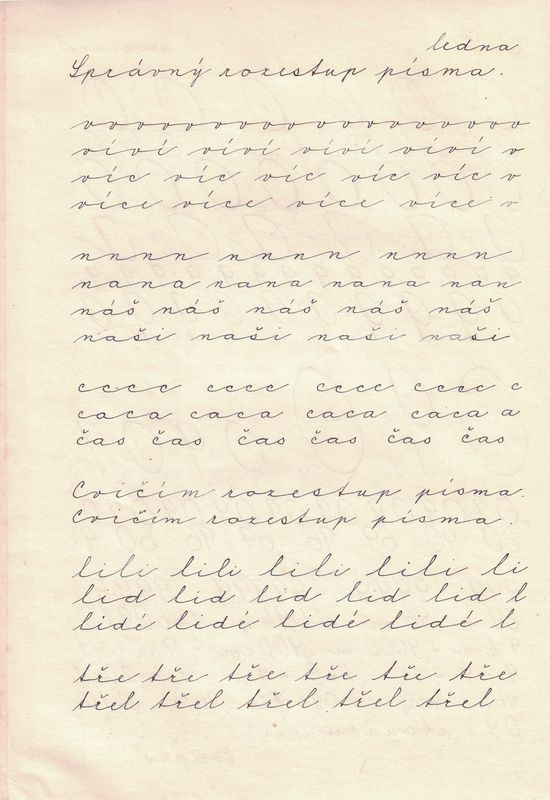 ledna
Správný rozestup písma.
vvvvvvvvvvvvvvvvvv
viví viví viví viví v
víc víc víc víc víc v
více více více více v
nnnn nnnn nnnn
nana nana nana nan
náš náš náš náš náš
naši naši naši naši
cccc cccc cccc cccc c
caca caca caca caca a
čas čas čas čas čas čas
Cvičím rozestup písma.
Cvičím rozestup písma.
lili lili lili lili li
lid lid lid lid lid l
lidé lidé lidé lidé l
tře tře tře tře tře tře
třel třel třel třel třel